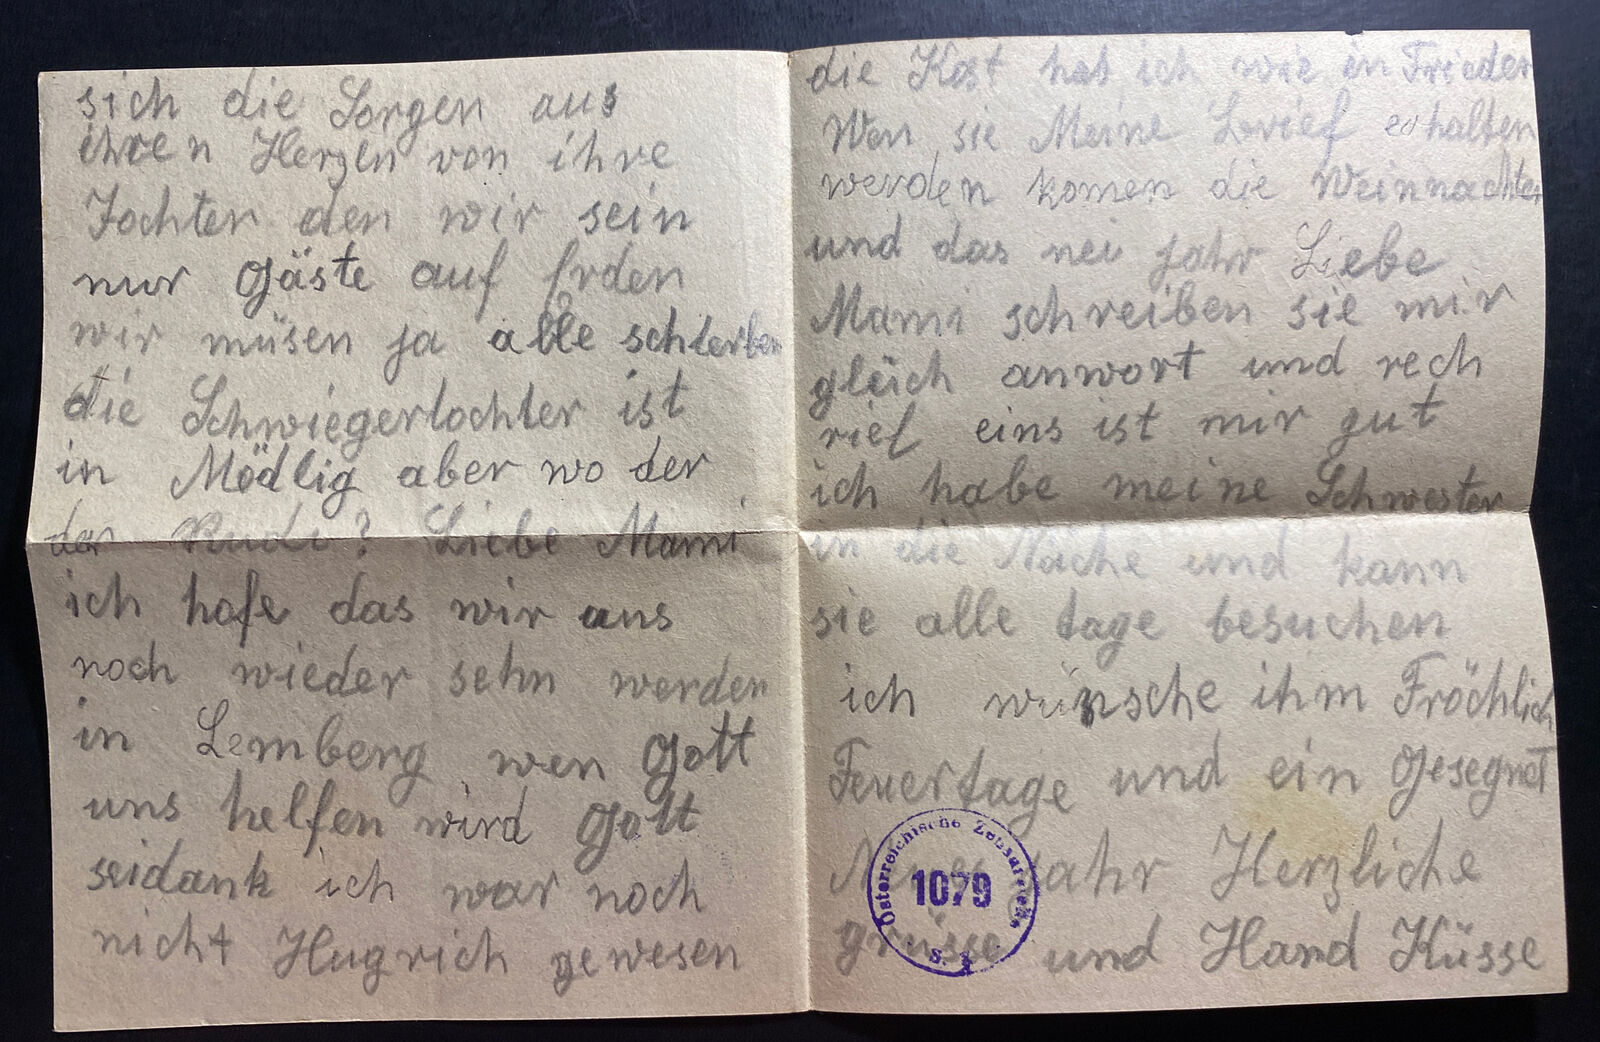 sich die Sorgen aus
ihren Herzen von ihre
Tochter den wir sein
nur Gäste auf Erden
wir müsen ja alle schterben
die Schwiegertochter ist
in Mödlig aber wo der
der Rudi? Liebe Mami
ich hofe das wir uns
noch wieder sehn werden
in Lemberg wen Gott
uns helfen wird Gott
seidank ich war noch
nicht Hugrich gewesen
die Kost hab ich wie in Frieden
Wen sie Meine erhalten
werden komen die Weinnachten
und das nei jahr Liebe
Mami schreiben sie mir
gleich anwort und rech
rief eins ist mir gut
ich habe meine Schwester
in die Näche und kann
sie alle tage besuchen
ich wünsche ihm Fröchlich
Feuertage und ein Gesegnet
Neues jahr Herzliche
grüsse und Hand Küsse
Österreichische Zensurstelle
1079